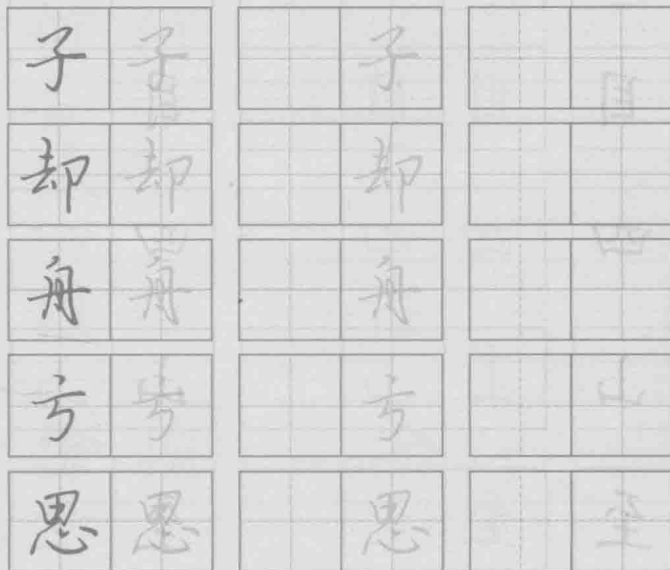 子 子 子
却 却 却
舟 舟 舟
亏 亏 亏
思 思 思